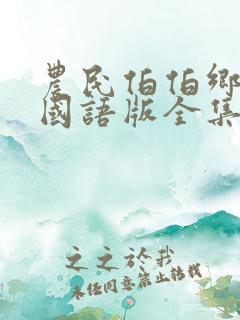 農民伯伯鄉
國語版全集
之之於我
未經同意禁止轉載